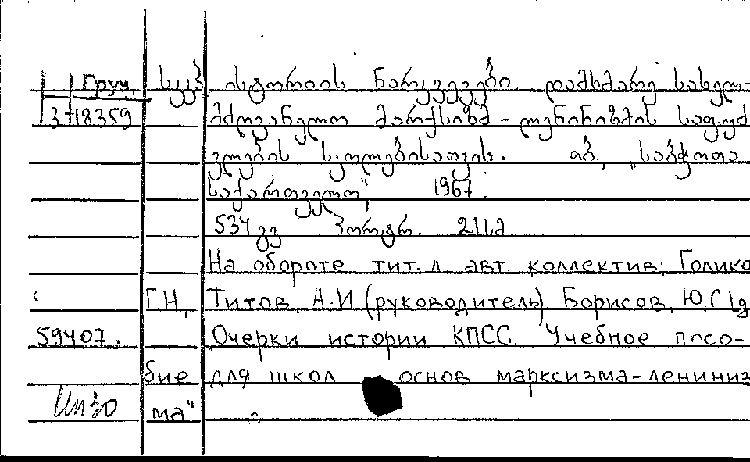 Груз. სკკპ ისტორიის ნარკვევები დამხმარე სახელ-
3-18359 მძღვანელო მარქსიზმ-ლენინიზმის საფუძ
ვლების სკოლებისათვის. თბ, „საბჭოთა
საქართველო", 1967.
534 გვ. პორტრ. 21 სმ
На обороте тит. л. авт коллектив: Голико
Г.Н., Титов А.И (руководитель) Борисов, Ю.С
59407. Очерки истории КПСС Учебное посо-
бие для школ основ марксизма-ленинiз
ма"